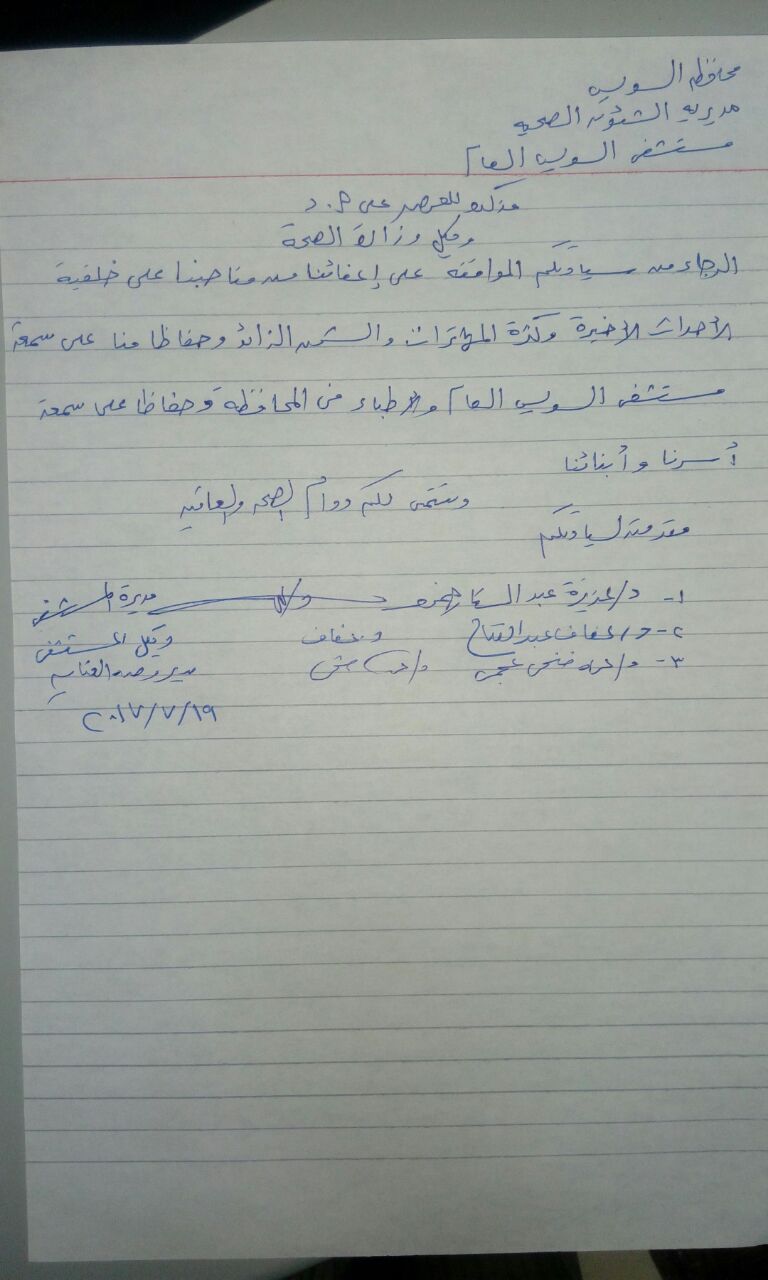 محافظه السويس
مديريه الشئون الصحيه
مستشفى السويس العام
مذكره للعرض على د.
وكيل وزارة الصحة
الرجاء من سيادتكم الموافقه على إعفائنا من مناصبنا على خلفية
الأحداث الأخيرة وكثرة المهاترات والشحن الزائد وحفاظا منا على سمعة
مستشفى السويس العام والأطباء فى المحافظة وحفاظا على سمعة
أسرنا وأبنائنا
ونتمنى لكم دوام الصحه والعافيه
مقدمته لسيادتكم
١- د/عزيزة عبد الستار مديرة المستشفى
٢- د/عفاف عبد الفتاح د. عفاف وكيل المستشفى
٣- د/عزه فتحى عجمى مدير وحده العنايه
٢٠١٧/٧/١٩